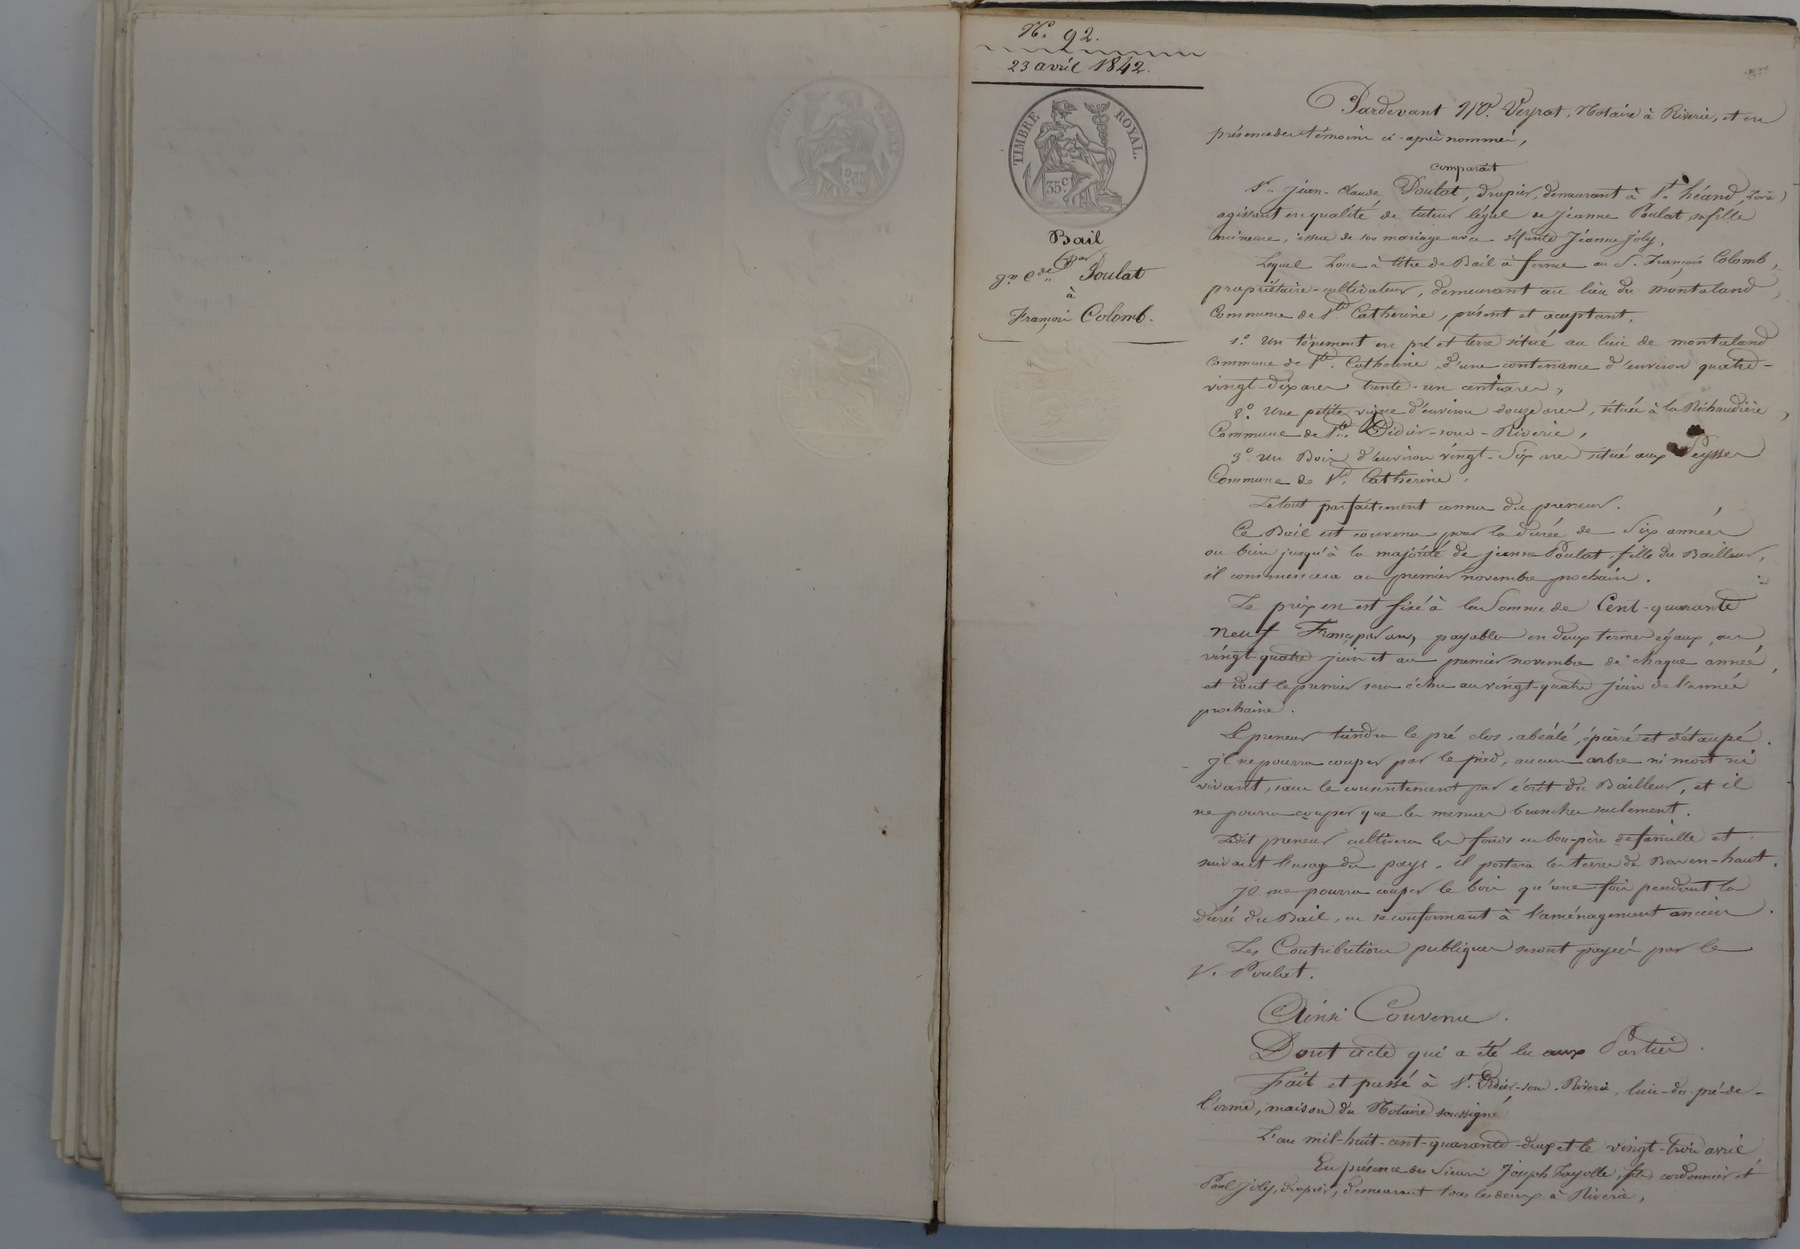 N.º 92.
23 avril 1842.
TIMBRE ROYAL.
35 c.
Bail
par
Jn Cde Poulat
à
François Colomb.
Pardevant Me. Veyrat, Notaire à Riverie, et en
présence des témoins ci-après nommés,
comparait
Sr. Jean-Claude Poulat, drapier, demeurant à St. héand, Loire
agissant en qualité de tuteur légal de Jeanne Poulat, sa fille
mineure, issue de son mariage avec défunte Jeanne Joly,
Lequel Loue à titre de Bail à ferme au S. François Colomb,
propriétaire-cultivateur, demeurant au lieu du montaland,
Commune de Ste. Catherine, présent et acceptant,
1.º Un tènement en pré et terre situé au lieu de montaland
commune de Ste. Catherine, d'une contenance d'environ quatre-
vingt-dix ares trente-un centiares,
2.º Une petite vigne d'environ douze ares, située à la Richaudière,
Commune de St. Didier-sous-Riverie,
3.º un Bois d'environ vingt-six ares situé aux Peysses
Commune de Ste. Catherine.
Le tout parfaitement connu du preneur.
Ce Bail est convenu pour la durée de Six années
ou bien jusqu'à la majorité de jeanne Poulat, fille du Bailleur,
il commencera au premier novembre prochain.
Le prix en est fixé à la Somme de Cent-quarante
neuf Francs par an, payables en deux termes égaux, au
vingt-quatre juin et au premier novembre de chaque année,
et dont le premier sera échu au vingt-quatre juin de l'année
prochaine.
Le preneur tiendra le pré clos, abéalé, épierré et détaupé.
Il ne pourra couper par le pied, aucun arbre ni mort ni
vivant, sans le consentement par écrit du Bailleur, et il
ne pourra couper que les menues branches seulement.
Ledit preneur cultivera les fonds en bon-père de famille et
suivant l'usage du pays. il portera les terres de Bas en-haut.
Il ne pourra couper le bois qu'une fois pendant la
durée du Bail, en se conformant à l'aménagement ancien.
Les Contributions publiques seront payées par le
S. Poulat.
Ainsi Convenu.
Dont acte qui a été lu aux Parties.
Fait et passé à St. Didier-sous-Riverie, lieu-du-pré-de-
l'orme, maison du Notaire soussigné
L'an mil-huit-cent-quarante-deux et le vingt-trois avril
En présence des Sieurs Joseph Fayolle, fils, cordonnier et
Paul Joly, drapier, demeurant tous les deux à Riverie,